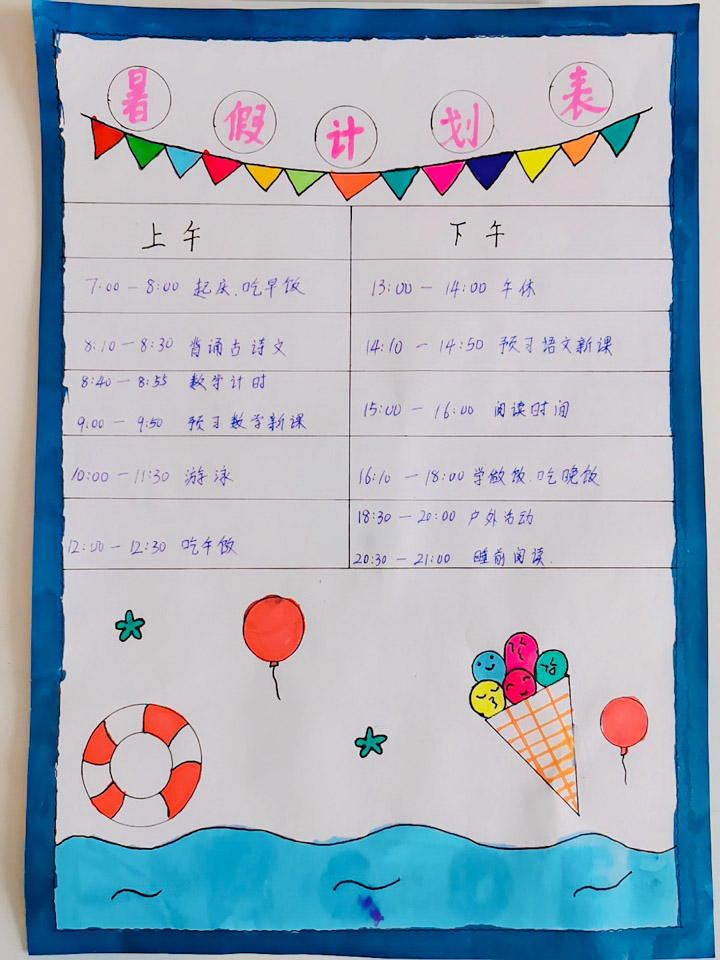 暑假计划表
上午
7:00 — 8:00 起床、吃早饭
8:10 — 8:30 背诵古诗文
8:40 — 8:55 数学计时
9:00 — 9:50 预习数学新课
10:00 — 11:30 游泳
12:00 — 12:30 吃午饭
下午
13:00 — 14:00 午休
14:10 — 14:50 预习语文新课
15:00 — 16:00 阅读时间
16:10 — 18:00 学做饭、吃晚饭
18:30 — 20:00 户外活动
20:30 — 21:00 睡前阅读.